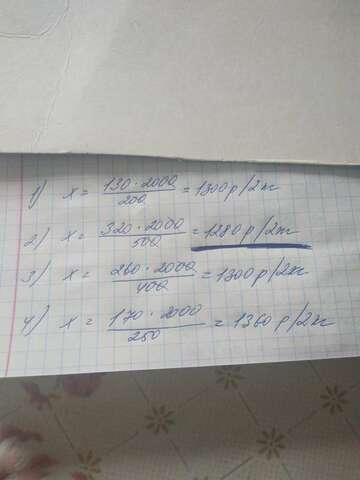 1) x = 130 · 2000 / 200 = 1300 р/2кг
2) x = 320 · 2000 / 500 = 1280 р/2кг
3) x = 260 · 2000 / 400 = 1300 р/2кг
4) x = 170 · 2000 / 250 = 1360 р/2кг